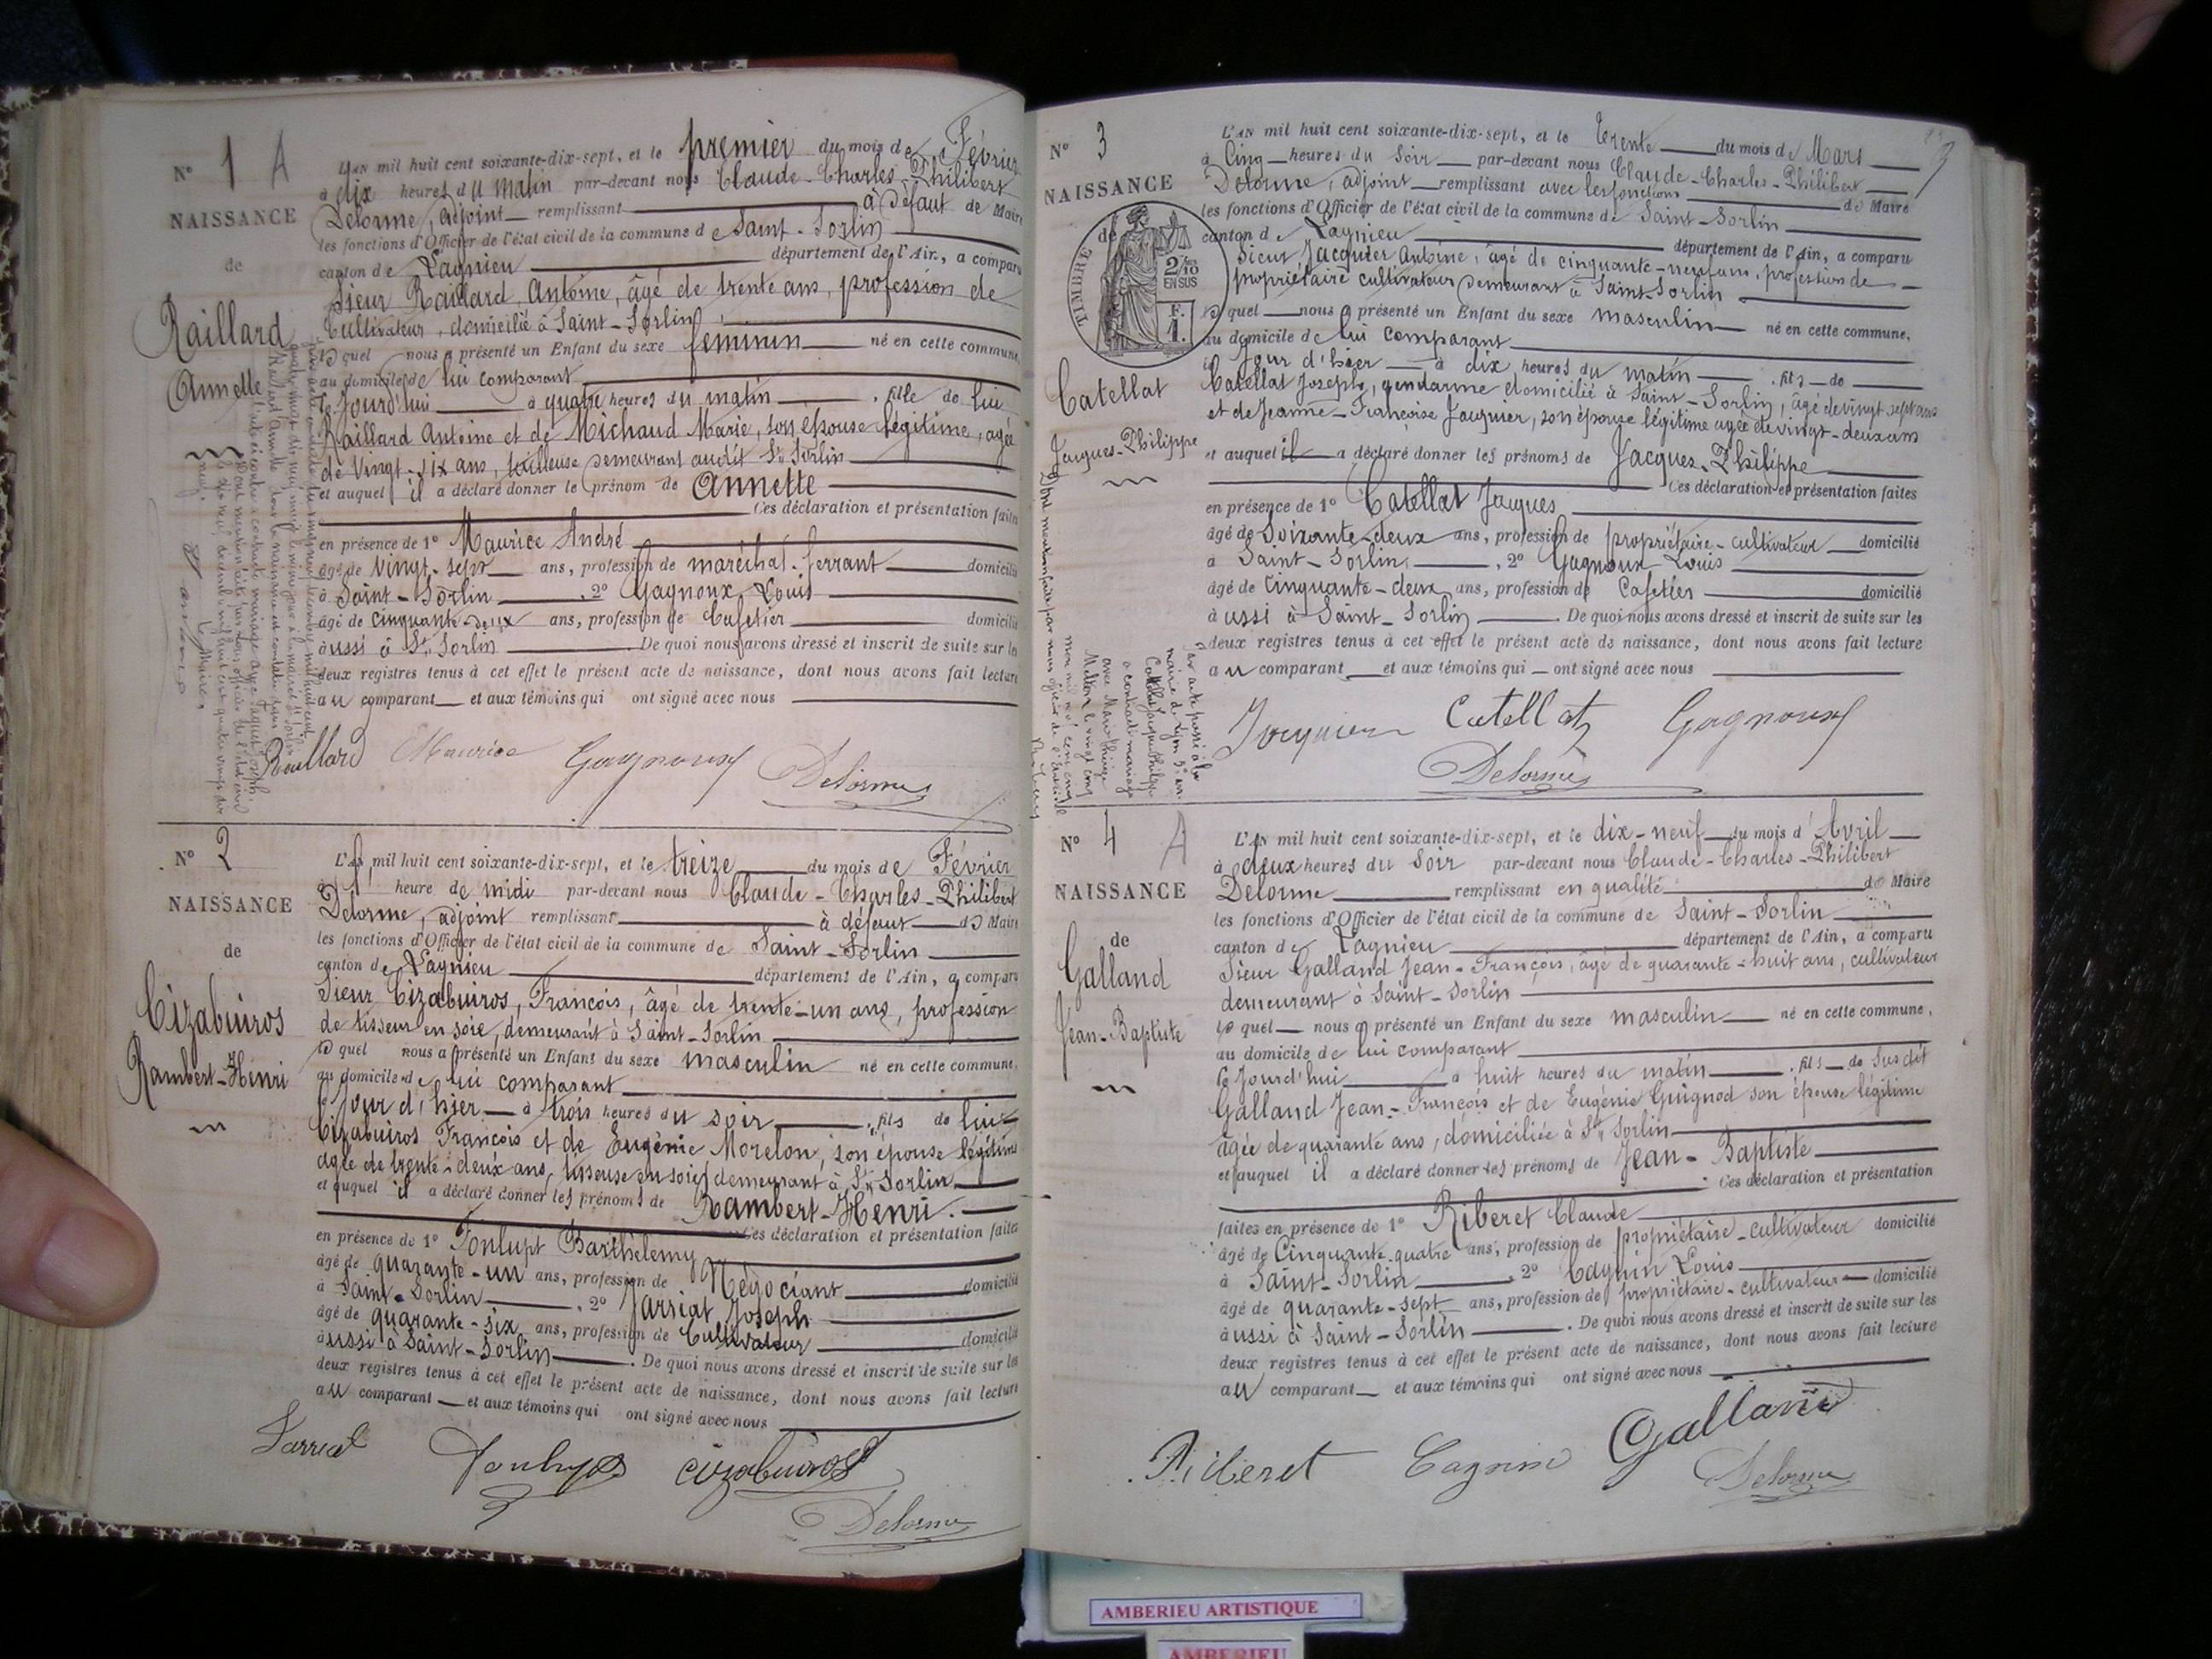 N° 1 A
NAISSANCE
de
Raillard
Annette
L'AN mil huit cent soixante-dix-sept, et le premier du mois de Février
à dix heures du matin par-devant nous Claude-Charles-Philibert
Delorme, adjoint remplissant à défaut de Maire
les fonctions d'Officier de l'état civil de la commune de Saint-Sorlin
canton de Lagnieu département de l'Ain, a comparu
Sieur Raillard, Antoine, âgé de trente ans, profession de
Cultivateur, domicilié à Saint-Sorlin
lequel nous a présenté un Enfant du sexe féminin né en cette commune,
au domicile de lui comparant
ce Jourd'hui à quatre heures du matin, fille de lui
Raillard Antoine et de Michaud Marie, son épouse légitime, agée
de Vingt-six ans, tailleuse demeurant audit St Sorlin
et auquel il a déclaré donner le prénom de Annette
Ces déclaration et présentation faites
en présence de 1° Maurice André
âgé de Vingt-sept ans, profession de maréchal-ferrant domicilié
à Saint-Sorlin, 2° Gagnoux Louis
âgé de cinquante-deux ans, profession de Cafetier domicilié
aussi à St Sorlin. De quoi nous avons dressé et inscrit de suite sur les
deux registres tenus à cet effet le présent acte de naissance, dont nous avons fait lecture
au comparant et aux témoins qui ont signé avec nous
Raillard Maurice Gagnoux Delorme
N° 2
NAISSANCE
de
Cizabuiros
Rambert-Henri
L'AN mil huit cent soixante-dix-sept, et le treize du mois de Février
à heure de midi par-devant nous Claude-Charles-Philibert
Delorme, adjoint remplissant à défaut de Maire
les fonctions d'Officier de l'état civil de la commune de Saint-Sorlin
canton de Lagnieu département de l'Ain, a comparu
Sieur Cizabuiros, François, âgé de trente-un ans, profession
de tisseur en soie, demeurant à Saint-Sorlin
lequel nous a présenté un Enfant du sexe masculin né en cette commune,
au domicile de lui comparant
le Jour d'hier à trois heures du soir, fils de lui
Cizabuiros François et de Eugénie Morelon, son épouse légitime
agée de trente-deux ans, tisseuse en soie, demeurant à St Sorlin
et auquel il a déclaré donner les prénoms de Rambert-Henri.
Ces déclaration et présentation faites
en présence de 1° Fonlupt Barthélemy
âgé de quarante-un ans, profession de Négociant domicilié
à Saint-Sorlin, 2° Jarriat Joseph
âgé de quarante-six ans, profession de Cultivateur domicilié
aussi à Saint-Sorlin. De quoi nous avons dressé et inscrit de suite sur les
deux registres tenus à cet effet le présent acte de naissance, dont nous avons fait lecture
au comparant et aux témoins qui ont signé avec nous
Jarriat Fonlupt Cizabuiros
Delorme
N° 3
NAISSANCE
de
TIMBRE
2/10
EN SUS
F.
1.
Catellat
Jacques-Philippe
L'AN mil huit cent soixante-dix-sept, et le trente du mois de Mars
à Cinq heures du Soir par-devant nous Claude-Charles-Philibert
Delorme, adjoint remplissant avec les fonctions de Maire
les fonctions d'Officier de l'état civil de la commune de Saint-Sorlin
canton de Lagnieu département de l'Ain, a comparu
Sieur Jacquier Antoine, âgé de cinquante-neuf ans, profession de
propriétaire cultivateur demeurant à Saint-Sorlin
lequel nous a présenté un Enfant du sexe masculin né en cette commune,
au domicile de lui comparant
le Jour d'hier à dix heures du matin, fils de
Catellat Joseph, gendarme domicilié à Saint-Sorlin, âgé de vingt sept ans
et de Jeanne-Françoise Jacquier, son épouse légitime agée de vingt-deux ans
et auquel il a déclaré donner les prénoms de Jacques-Philippe
Ces déclaration et présentation faites
en présence de 1° Catellat Jacques
âgé de Soixante-deux ans, profession de propriétaire-cultivateur domicilié
à Saint-Sorlin, 2° Gagnoux Louis
âgé de cinquante-deux ans, profession de Cafetier domicilié
aussi à Saint-Sorlin. De quoi nous avons dressé et inscrit de suite sur les
deux registres tenus à cet effet le présent acte de naissance, dont nous avons fait lecture
au comparant et aux témoins qui ont signé avec nous
Jacquier Catellat Gagnoux
Delorme
N° 4 A
NAISSANCE
de
Galland
Jean-Baptiste
L'AN mil huit cent soixante-dix-sept, et le dix-neuf du mois d'Avril
à deux heures du Soir par-devant nous Claude-Charles-Philibert
Delorme remplissant en qualité de Maire
les fonctions d'Officier de l'état civil de la commune de Saint-Sorlin
canton de Lagnieu département de l'Ain, a comparu
Sieur Galland Jean-François, âgé de quarante-huit ans, cultivateur
demeurant à Saint-Sorlin
lequel nous a présenté un Enfant du sexe masculin né en cette commune,
au domicile de lui comparant
ce Jourd'hui à huit heures du matin, fils de susdit
Galland Jean-François et de Eugénie Guignod son épouse légitime
âgée de quarante ans, domiciliée à St Sorlin
et auquel il a déclaré donner les prénoms de Jean-Baptiste
Ces déclaration et présentation
faites en présence de 1° Riberet Claude
âgé de Cinquante-quatre ans, profession de propriétaire-cultivateur domicilié
à Saint-Sorlin, 2° Cagnin Louis
âgé de quarante-sept ans, profession de propriétaire-cultivateur domicilié
aussi à Saint-Sorlin. De quoi nous avons dressé et inscrit de suite sur les
deux registres tenus à cet effet le présent acte de naissance, dont nous avons fait lecture
au comparant et aux témoins qui ont signé avec nous
Riberet Cagnin Galland
Delorme
AMBERIEU ARTISTIQUE
AMBERIEU